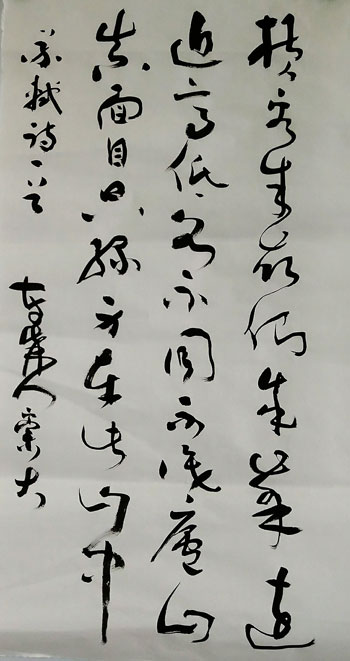 横看成岭侧成峰远
近高低各不同不识庐山
真面目只缘身在此山中
苏轼诗一首